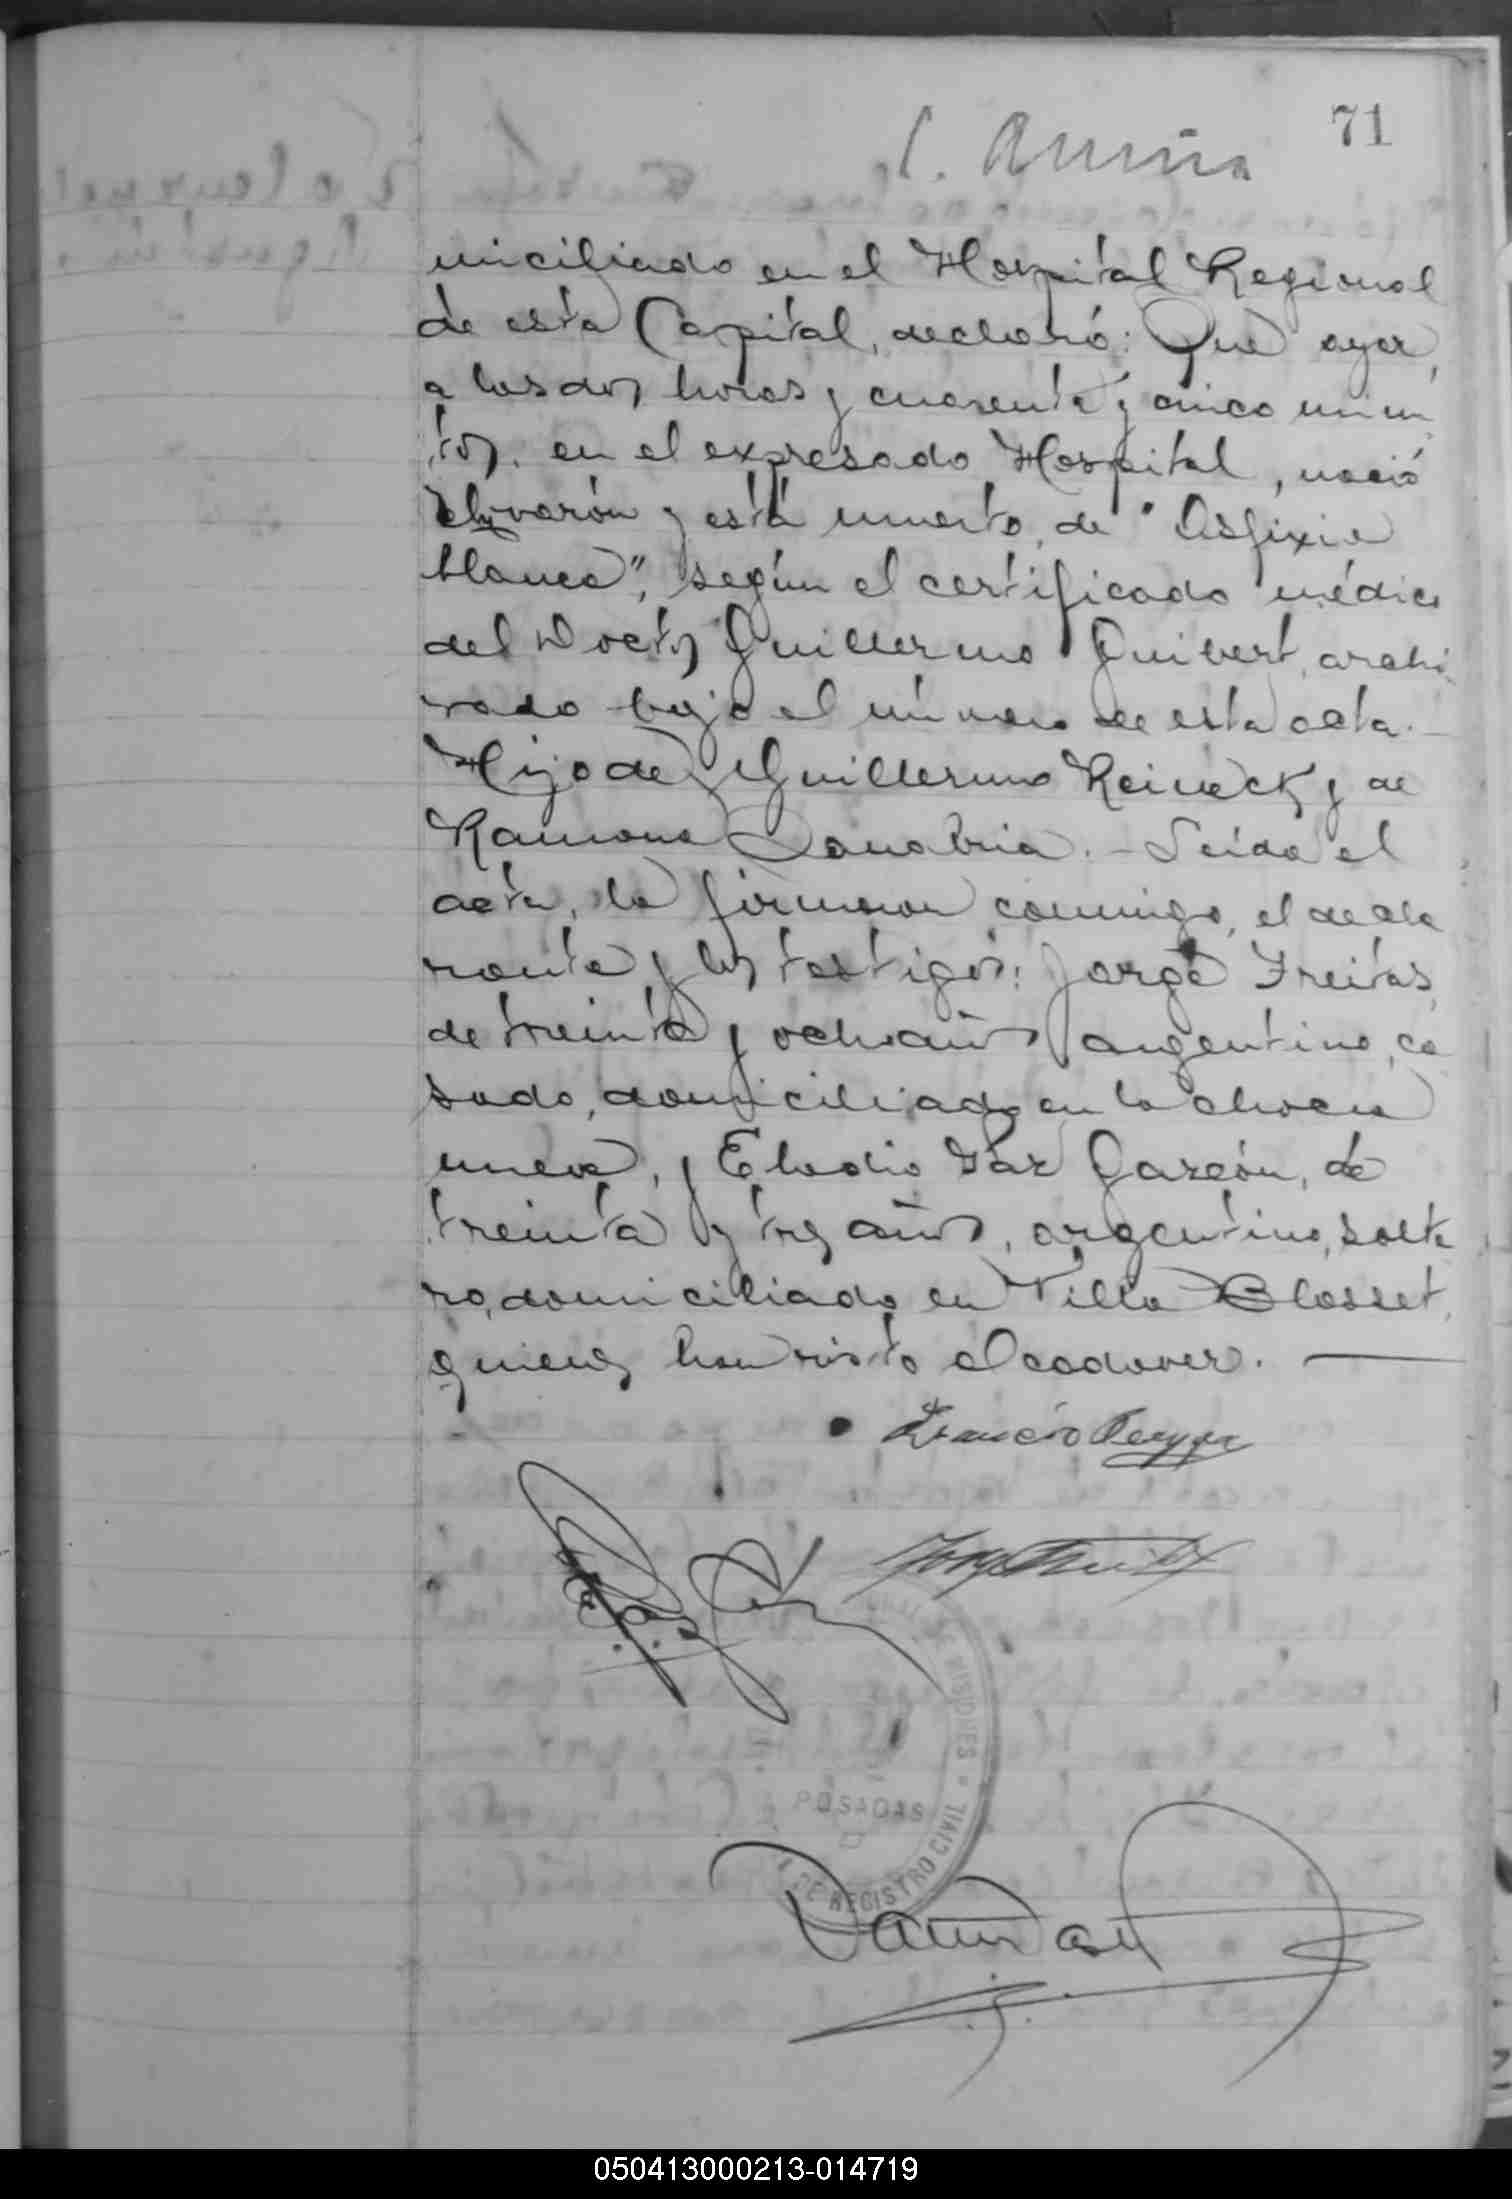 71
miciliado en el Hospital Regional
de esta Capital, declaró: Que ayer,
a las dos horas y cuarenta y cinco minu
tos, en el expresado Hospital, nació
varón y está muerto, de "Asfixia
blanca", según el certificado médico
del Doctor Guillermo Guibert, archi
vado bajo el número de esta acta.-
Hijo de Guillermo Reineck y de
Ramona Sanabria.- Leida el
acta, la firmaron conmigo, el decla
rante y los testigos: Jorge Freitas,
de treinta y ocho años, argentino, ca
sado, domiciliado en la chacra
nueve, y Eladio Paz Garzón, de
treinta y tres años, argentino, solte
ro, domiciliado en Villa Blosset,
quienes han visto el cadaver.
POSADAS
DE REGISTRO CIVIL
050413000213-014719